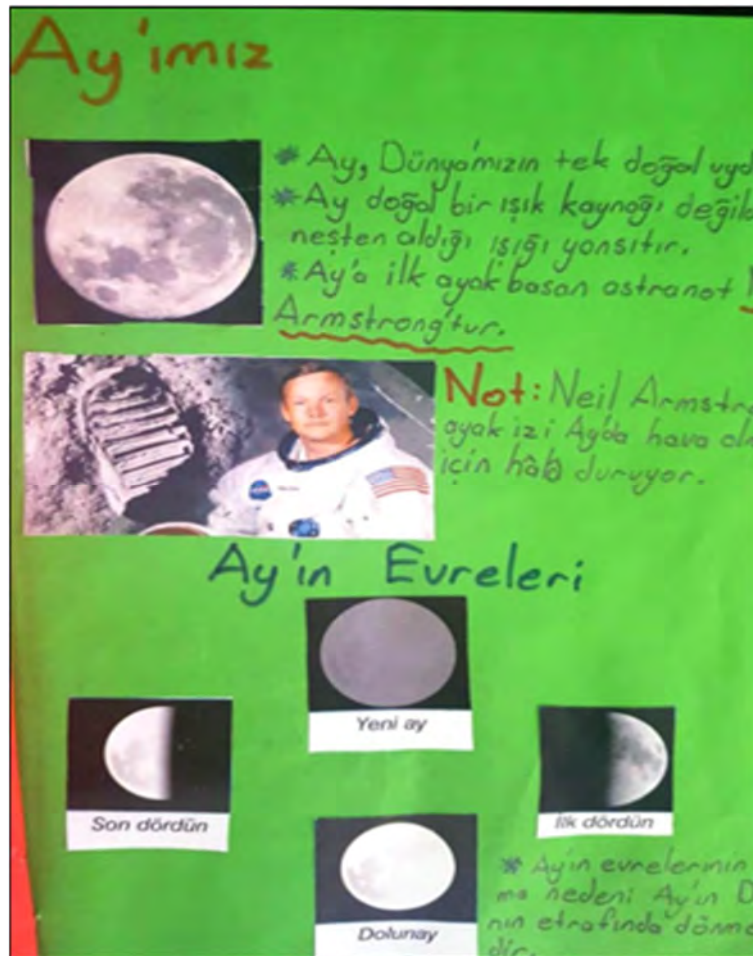 Ay'ımız
* Ay, Dünya'mızın tek doğal uyd
* Ay doğal bir ışık kaynağı değil
neşten aldığı ışığı yansıtır.
* Ay'a ilk ayak basan astranot
Armstrong'tur.
Not: Neil Armstr
ayak izi Ay'da hava olm
için hâlâ duruyor.
Ay'ın Evreleri
Yeni ay
Son dördün
İlk dördün
Dolunay
* Ay'ın evrelerinin
ma nedeni Ay'ın D
nın etrafında dönme
dir.